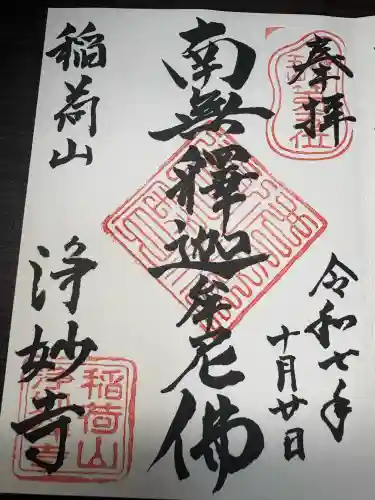 奉拝
令和七年
十月廿日
南無釋迦牟尼佛
稲荷山
浄妙寺
稲荷山
浄妙寺